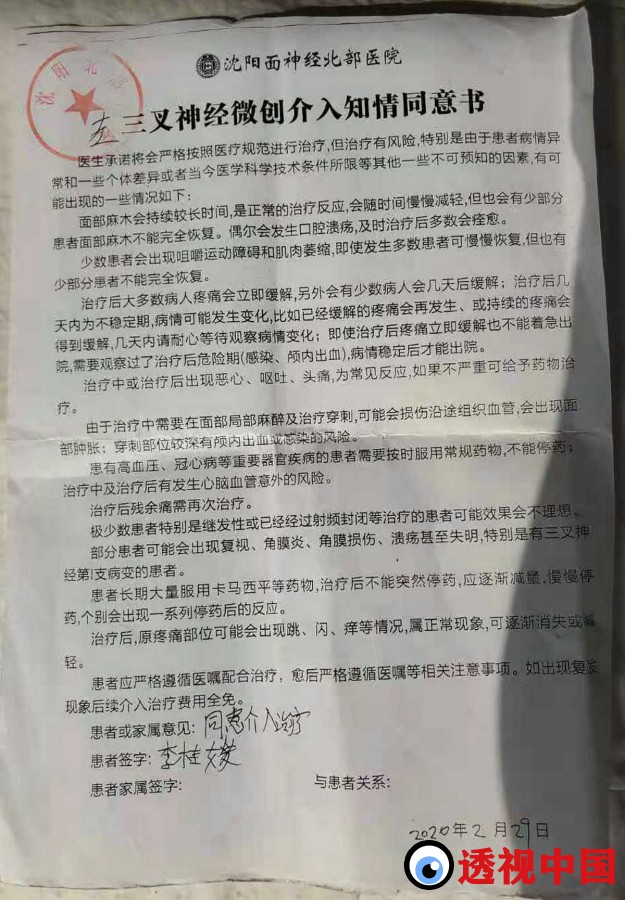 沈阳北部
沈阳面神经北部医院
左 三叉神经微创介入知情同意书
医生承诺将会严格按照医疗规范进行治疗,但治疗有风险,特别是由于患者病情异
常和一些个体差异或者当今医学科学技术条件所限等其他一些不可预知的因素,有可
能出现的一些情况如下:
面部麻木会持续较长时间,是正常的治疗反应,会随时间慢慢减轻,但也会有少部分
患者面部麻木不能完全恢复。偶尔会发生口腔溃疡,及时治疗后多数会痊愈。
少数患者会出现咀嚼运动障碍和肌肉萎缩,即使发生多数患者可慢慢恢复,但也有
少部分患者不能完全恢复。
治疗后大多数病人疼痛会立即缓解,另外会有少数病人会几天后缓解；治疗后几
天内为不稳定期,病情可能发生变化,比如已经缓解的疼痛会再发生、或持续的疼痛会
得到缓解,几天内请耐心等待观察病情变化；即使治疗后疼痛立即缓解也不能着急出
院,需要观察过了治疗后危险期(感染、颅内出血),病情稳定后才能出院。
治疗中或治疗后出现恶心、呕吐、头痛,为常见反应,如果不严重可给予药物治
疗。
由于治疗中需要在面部局部麻醉及治疗穿刺,可能会损伤沿途组织血管,会出现面
部肿胀；穿刺部位较深有颅内出血或感染的风险。
患有高血压、冠心病等重要器官疾病的患者需要按时服用常规药物,不能停药；
治疗中及治疗后有发生心脑血管意外的风险。
治疗后残余痛需再次治疗。
极少数患者特别是继发性或已经经过射频封闭等治疗的患者可能效果会不理想。
部分患者可能会出现复视、角膜炎、角膜损伤、溃疡甚至失明,特别是有三叉神
经第I支病变的患者。
患者长期大量服用卡马西平等药物,治疗后不能突然停药,应逐渐减量,慢慢停
药,个别会出现一系列停药后的反应。
治疗后,原疼痛部位可能会出现跳、闪、痒等情况,属正常现象,可逐渐消失或减
轻。
患者应严格遵循医嘱配合治疗，愈后严格遵循医嘱等相关注意事项。如出现复发
现象后续介入治疗费用全免。
患者或家属意见: 同意介入治疗
患者签字: 李桂
患者家属签字: 与患者关系:
2020年2月29日
透视中国